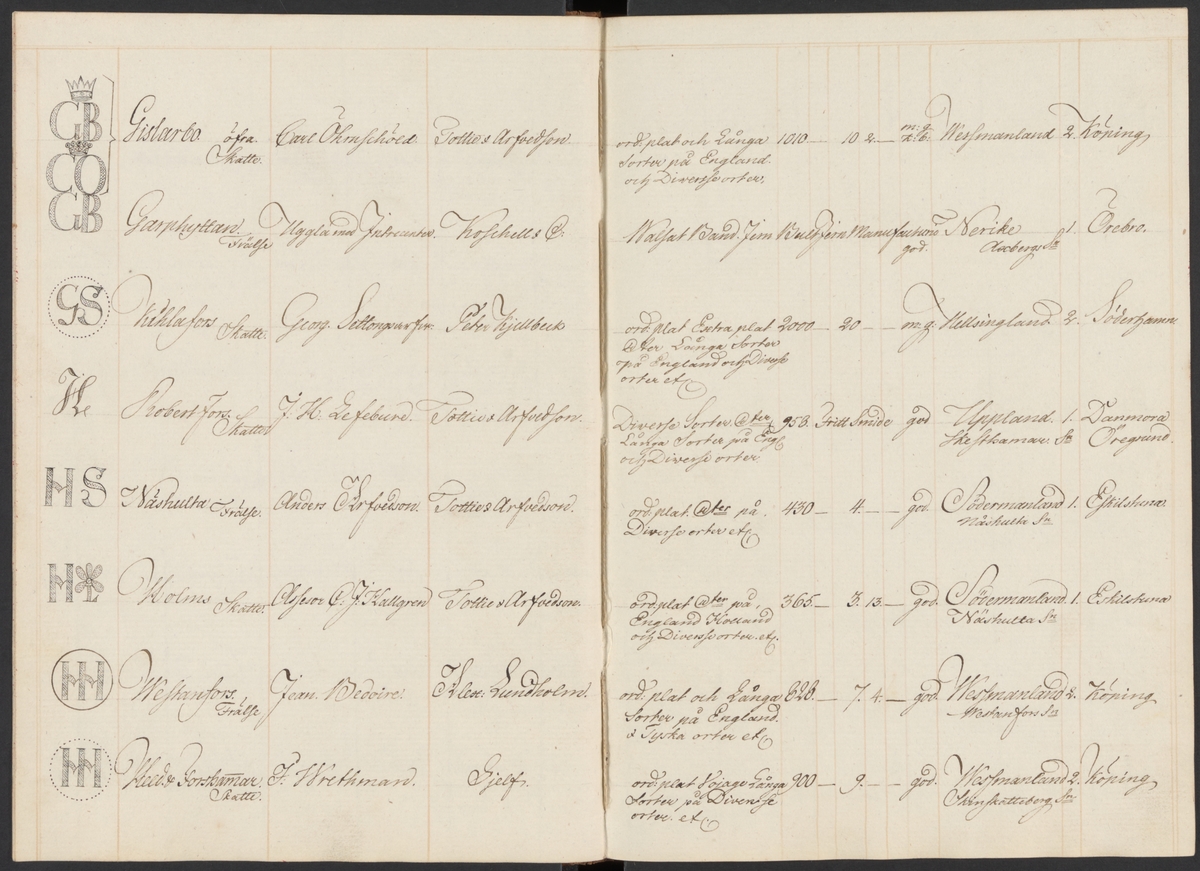 GB
CO
GB
Gislarbo öfra Carl Öhrnschöld Tottie & Arfvedson. ord. plat och Långa 1010 — 10 2. — m: g. Westmanland 2. Köping
Skatte. Sorter på England
och Diversse orter.
Garphyttan. Uggla med Intressenter Koschell & C: Walsat Band. Jern Bult Jern Manufacturerie Nerike 1. Örebro.
Frälse god. Axbergs Sn
GS
Kihlafors Skatte: Georg. Peter Kjellbeck ord. plat Extra plat 2000 — 20 — m: g. Hellsingland 2. Söderhamn
@ter Långa Sorter
på England och Diverse
orter etc
HL
Robertsfors J. H. Lefebure. Tottie & Arfvedson. Diverse Sorter @ter 953. Fritt Smide god Uppland. 1. Danmora
Skatte Långa Sorter på Engl Sn Öregrund
och Diverse orter
HS
Näshulta Frälse. Anders Arfvedson. Tottie & Arfvedson. ord. plat. @ter på 430 — 4. — god. Södermanland 1. Eskilstuna
Diverse orter etc Näshulta Sn
HL
Holms Skatte. Assesor C. J. Hallgren Tottie & Arfvedson. ord. plat @ter på 365. — 3. 13. — god. Södermanland 1. Eskilstuna
England Holland Näshulta Sn
och Diversse orter. etc
HH
Westanfors. Jean. Bedoire: Alex: Lundholm. ord. plat och Långa 626. — 7. 4. — god. Westmanland 2. Köping
Frälse Sorter på England. Westanfors Sn
& Tyska orter etc
HH
Hed & Forshamar. F. Wrethman. Sielf. ord. plat Vojage Långa 900 — 9. — god. Westmanland 2. Köping
Skatte. Sorter på Diversse Skinskatteberg Sn
orter. etc